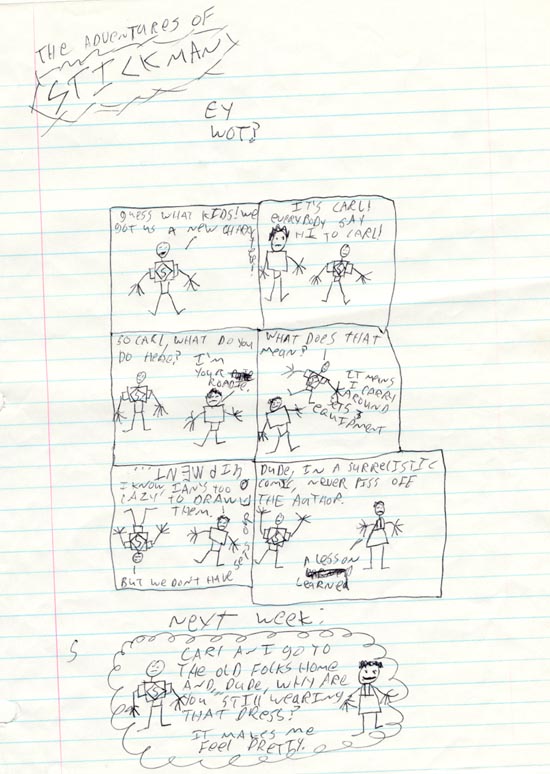 THE ADVENTURES OF
STICKMAN
EY
WOT?
GUESS WHAT KIDS! WE
GOT US A NEW
IT'S CARL!
EVERYBODY SAY
HI TO CARL!
SO CARL, WHAT DO YOU
DO HERE?
I'M
YOUR
ROADIE.
WHAT DOES THAT
MEAN?
IT MEANS
I CARRY
AROUND
EQUIPMENT
I KNOW IAN'S TOO
LAZY TO DRAW
THEM.
BUT WE DON'T HAVE
DUDE, IN A SURRELISTIC
COMIC, NEVER PISS OFF
THE AUTHOR.
A LESSON
LEARNED
NEXT WEEK:
S
CARL AN I GO TO
THE OLD FOLKS HOME
AND, DUDE, WHY ARE
YOU STILL WEARING
THAT DRESS?
IT MAKES ME
FEEL PRETTY.